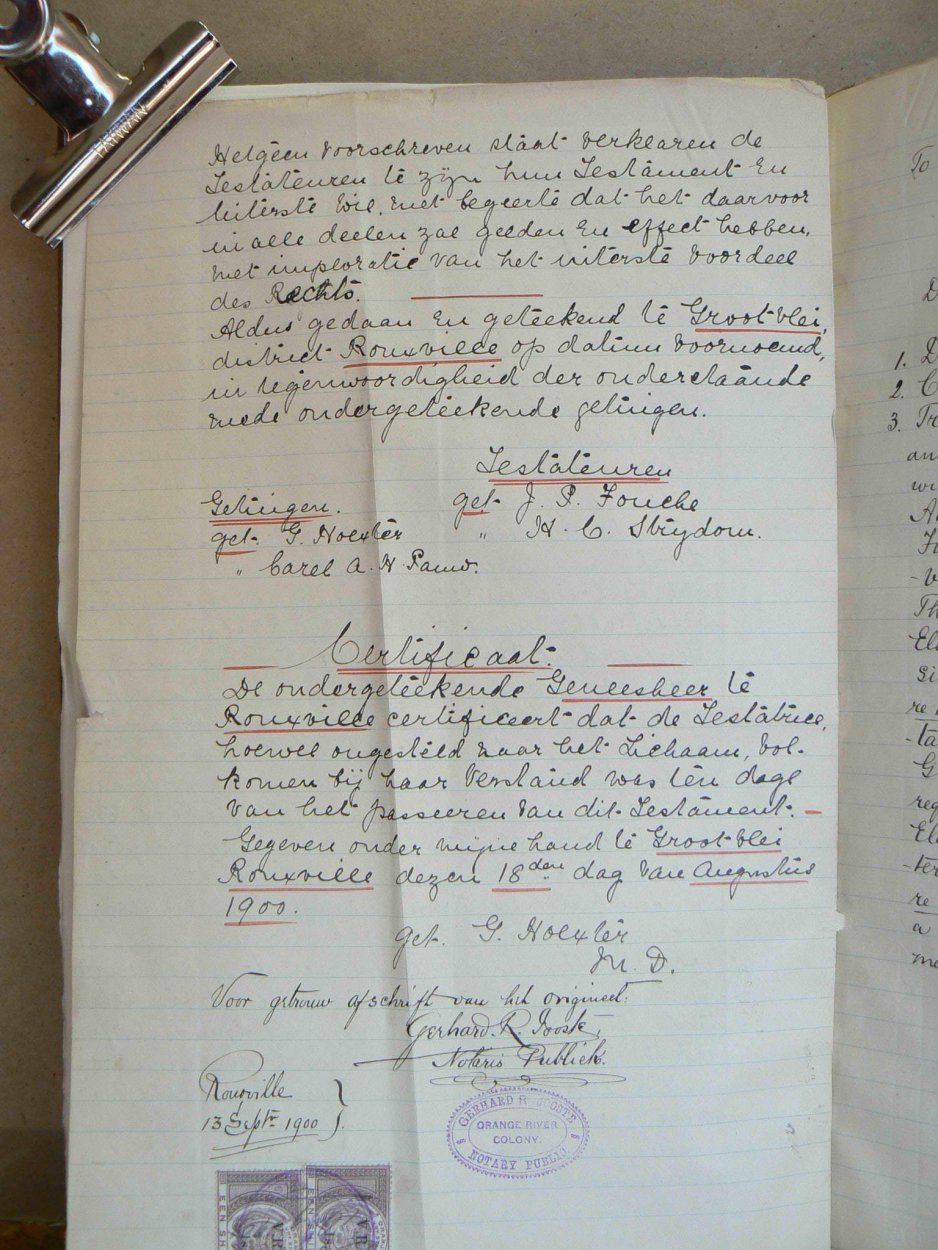 TAIWAN
Hetgeen voorschreven staat verklaaren de
Testateuren te zijn hun Testament En
Uiterste Wil, met begeerte dat het daarvoor
in alle deelen zal gelden En effect hebben,
met imploratie van het uiterste voordeel
des Rechts.
Aldus gedaan En geteekend te Grootvlei,
district Rouxville op datum voornoemd,
in tegenwoordigheid der onderstaande
mede ondergeteekende getuigen.
Testateuren
Getuigen. get. J. P. Fouche
get. G. Hoexter " H. C. Strydom.
" Carel A. N.
Certificaat.
De ondergeteekende Geneesheer te
Rouxville certificeert dat de Testatrice,
hoewel ongesteld naar het Lichaam, vol-
komen bij haar Verstand was ten dage
van het passeeren van dit Testament.
Gegeven onder mijne hand te Grootvlei
Rouxville dezen 18den dag van Augustus
1900.
get. G. Hoexter
M. D.
Voor getrouw afschrift van het origineel.
Gerhard. R. Joosté,
Notaris Publiek.
Rouxville
13 Septr 1900
GERHARD R JOOSTE
ORANGE RIVER
COLONY.
NOTARY PUBLIC
EEN SH
EEN SH
V.R.
To
D
1. D
2. C
3. Tr
an
wi
Th
El
re
-ta
G
reg
El
-ter
re
a
me